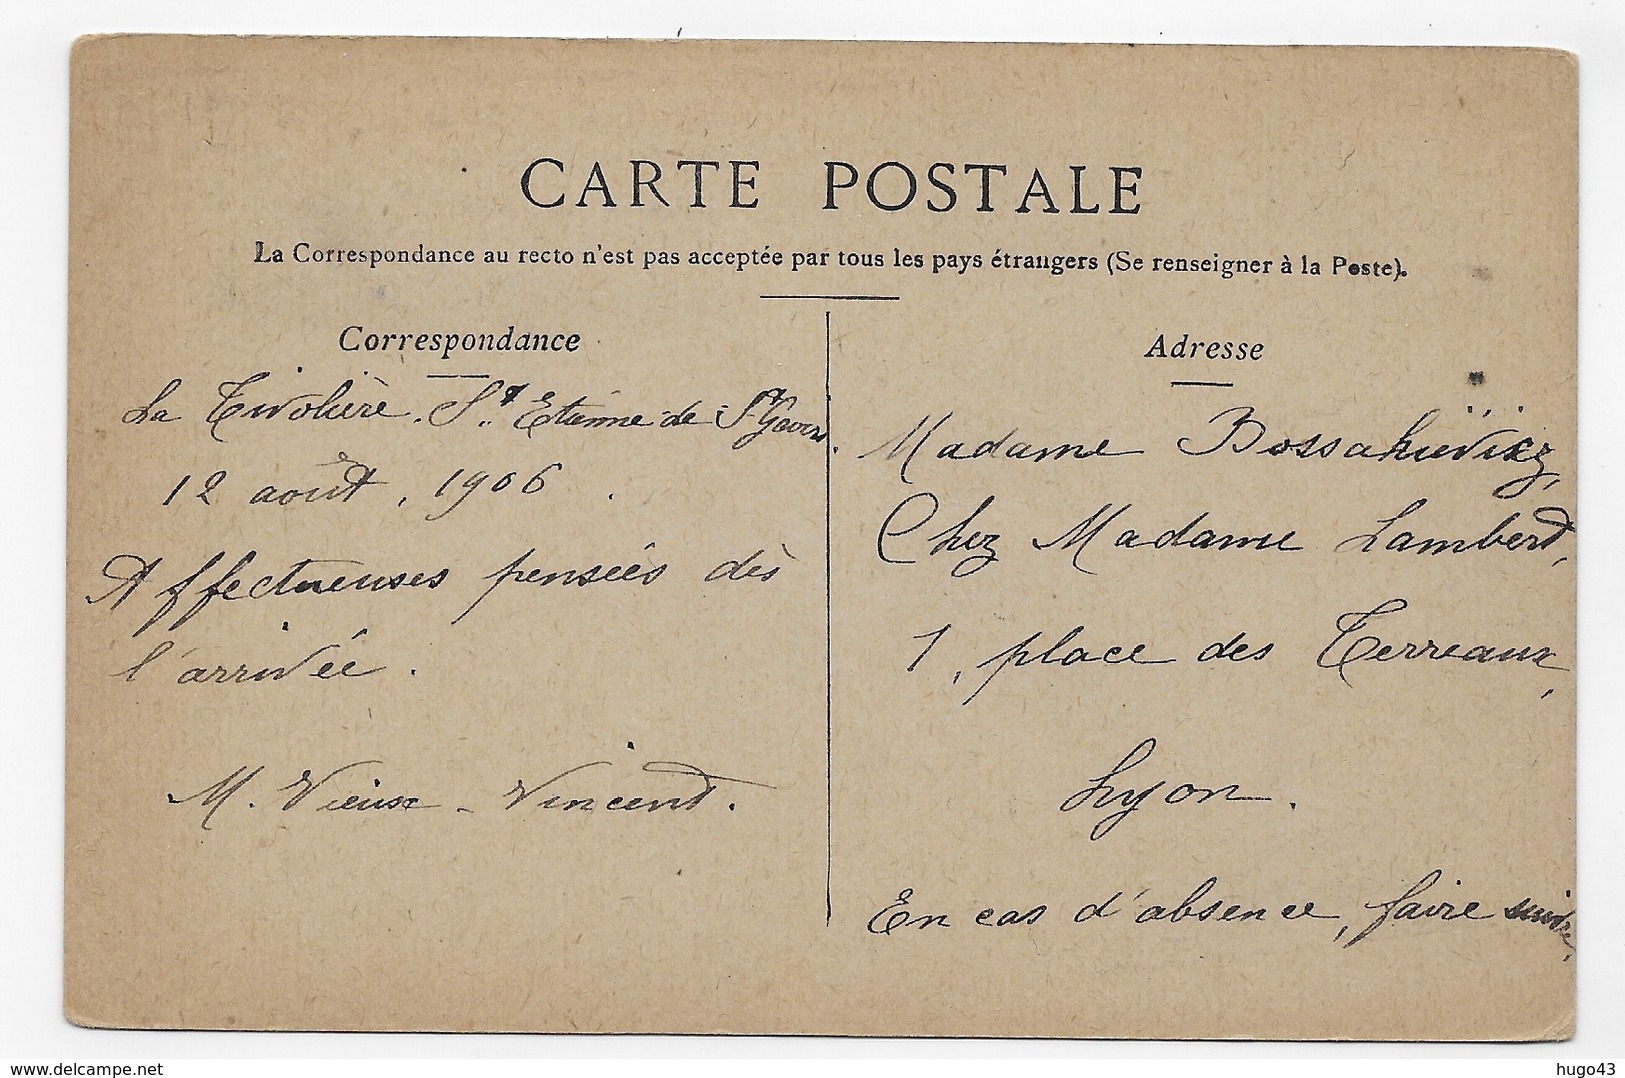 CARTE POSTALE
La Correspondance au recto n'est pas acceptée par tous les pays étrangers (Se renseigner à la Poste).
Correspondance
La Tivolière. St. Etienne-de-St Geoirs.
12 août, 1906.
Affectueuses pensées dès
l'arrivée.
M. Vieux-Vincent.
Adresse
Madame
Chez Madame Lambert,
1, place des Terreaux,
Lyon.
En cas d'absence, faire suivre.
delcampe.net
hugo43